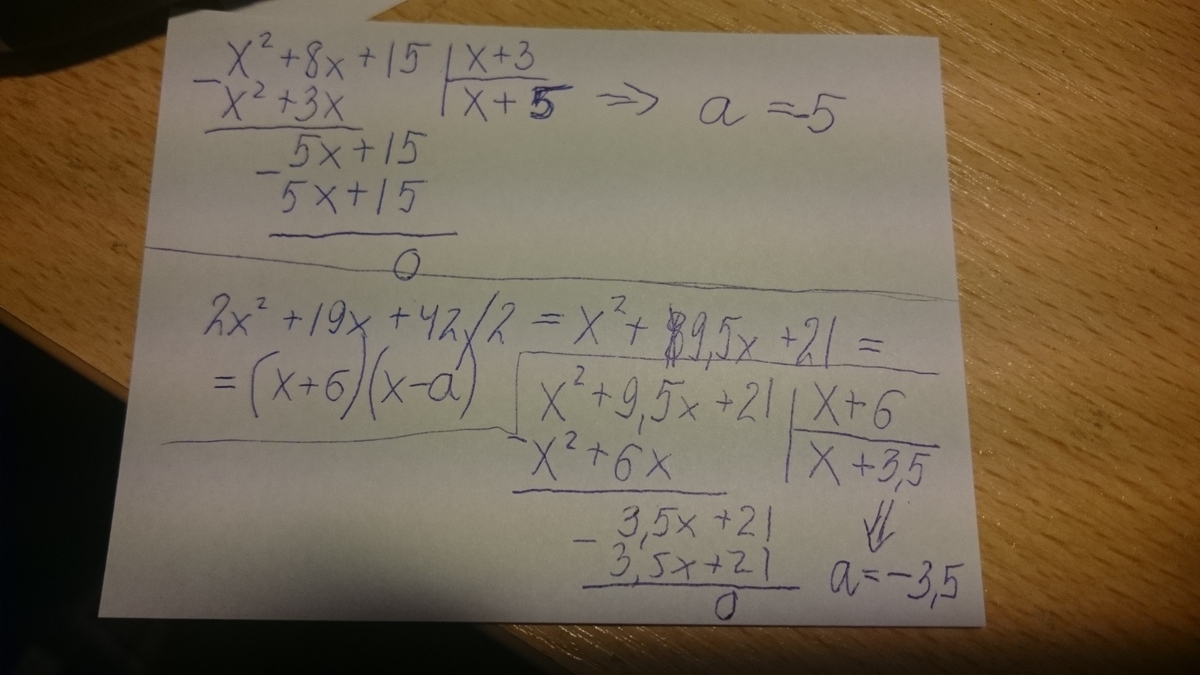 x²+8x+15 | x+3
- x²+3x | x+5 => a=-5
5x+15
- 5x+15
0
2x²+19x+42/2 = x²+9,5x+21 =
= (x+6)(x-a)
x²+9,5x+21 | x+6
- x²+6x | x+3,5
3,5x+21 ⇓
- 3,5x+21 a=-3,5
0